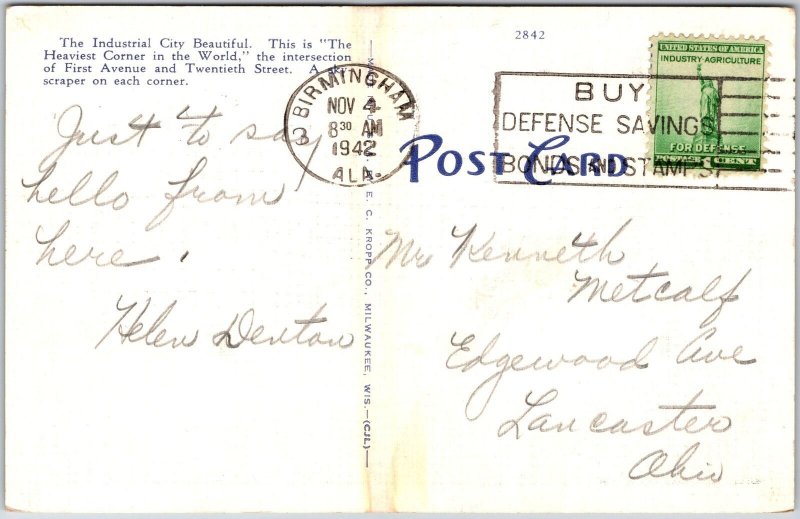 The Industrial City Beautiful. This is "The
Heaviest Corner in the World," the intersection
of First Avenue and Twentieth Street. A sky-
scraper on each corner.
2842
UNITED STATES OF AMERICA
INDUSTRY·AGRICULTURE
FOR DEFENSE
CENT
BIRMINGHAM
NOV 4
8 30 AM
1942
ALA.
3
BUY
DEFENSE SAVINGS
BONDS AND STAMPS
POST CARD
E. C. KROPP CO., MILWAUKEE, WIS.—(CJL)—
Just to say
hello from
here.
Helen Denton
Mr Kenneth
Metcalf
Edgewood Ave
Lancaster
Ohio